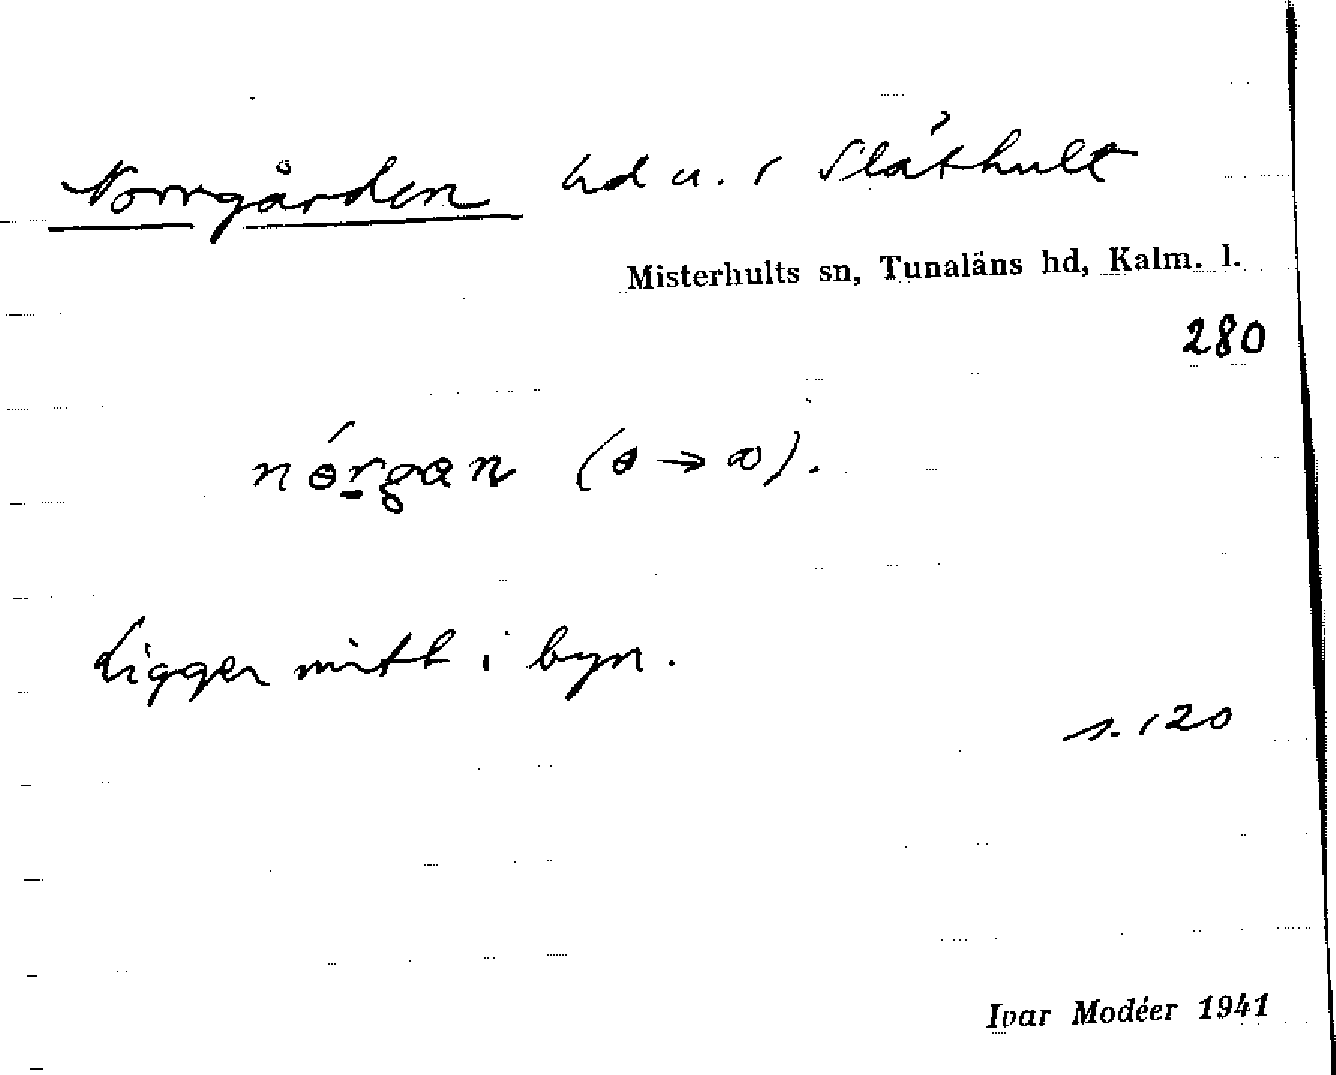 Norrgården hd u. i Slåthult
Misterhults sn, Tunaläns hd, Kalm. l.
280
nɵ́rgan (ɵ → ꝏ).
Ligger mitt i byn.
s. 120
Ivar Modéer 1941